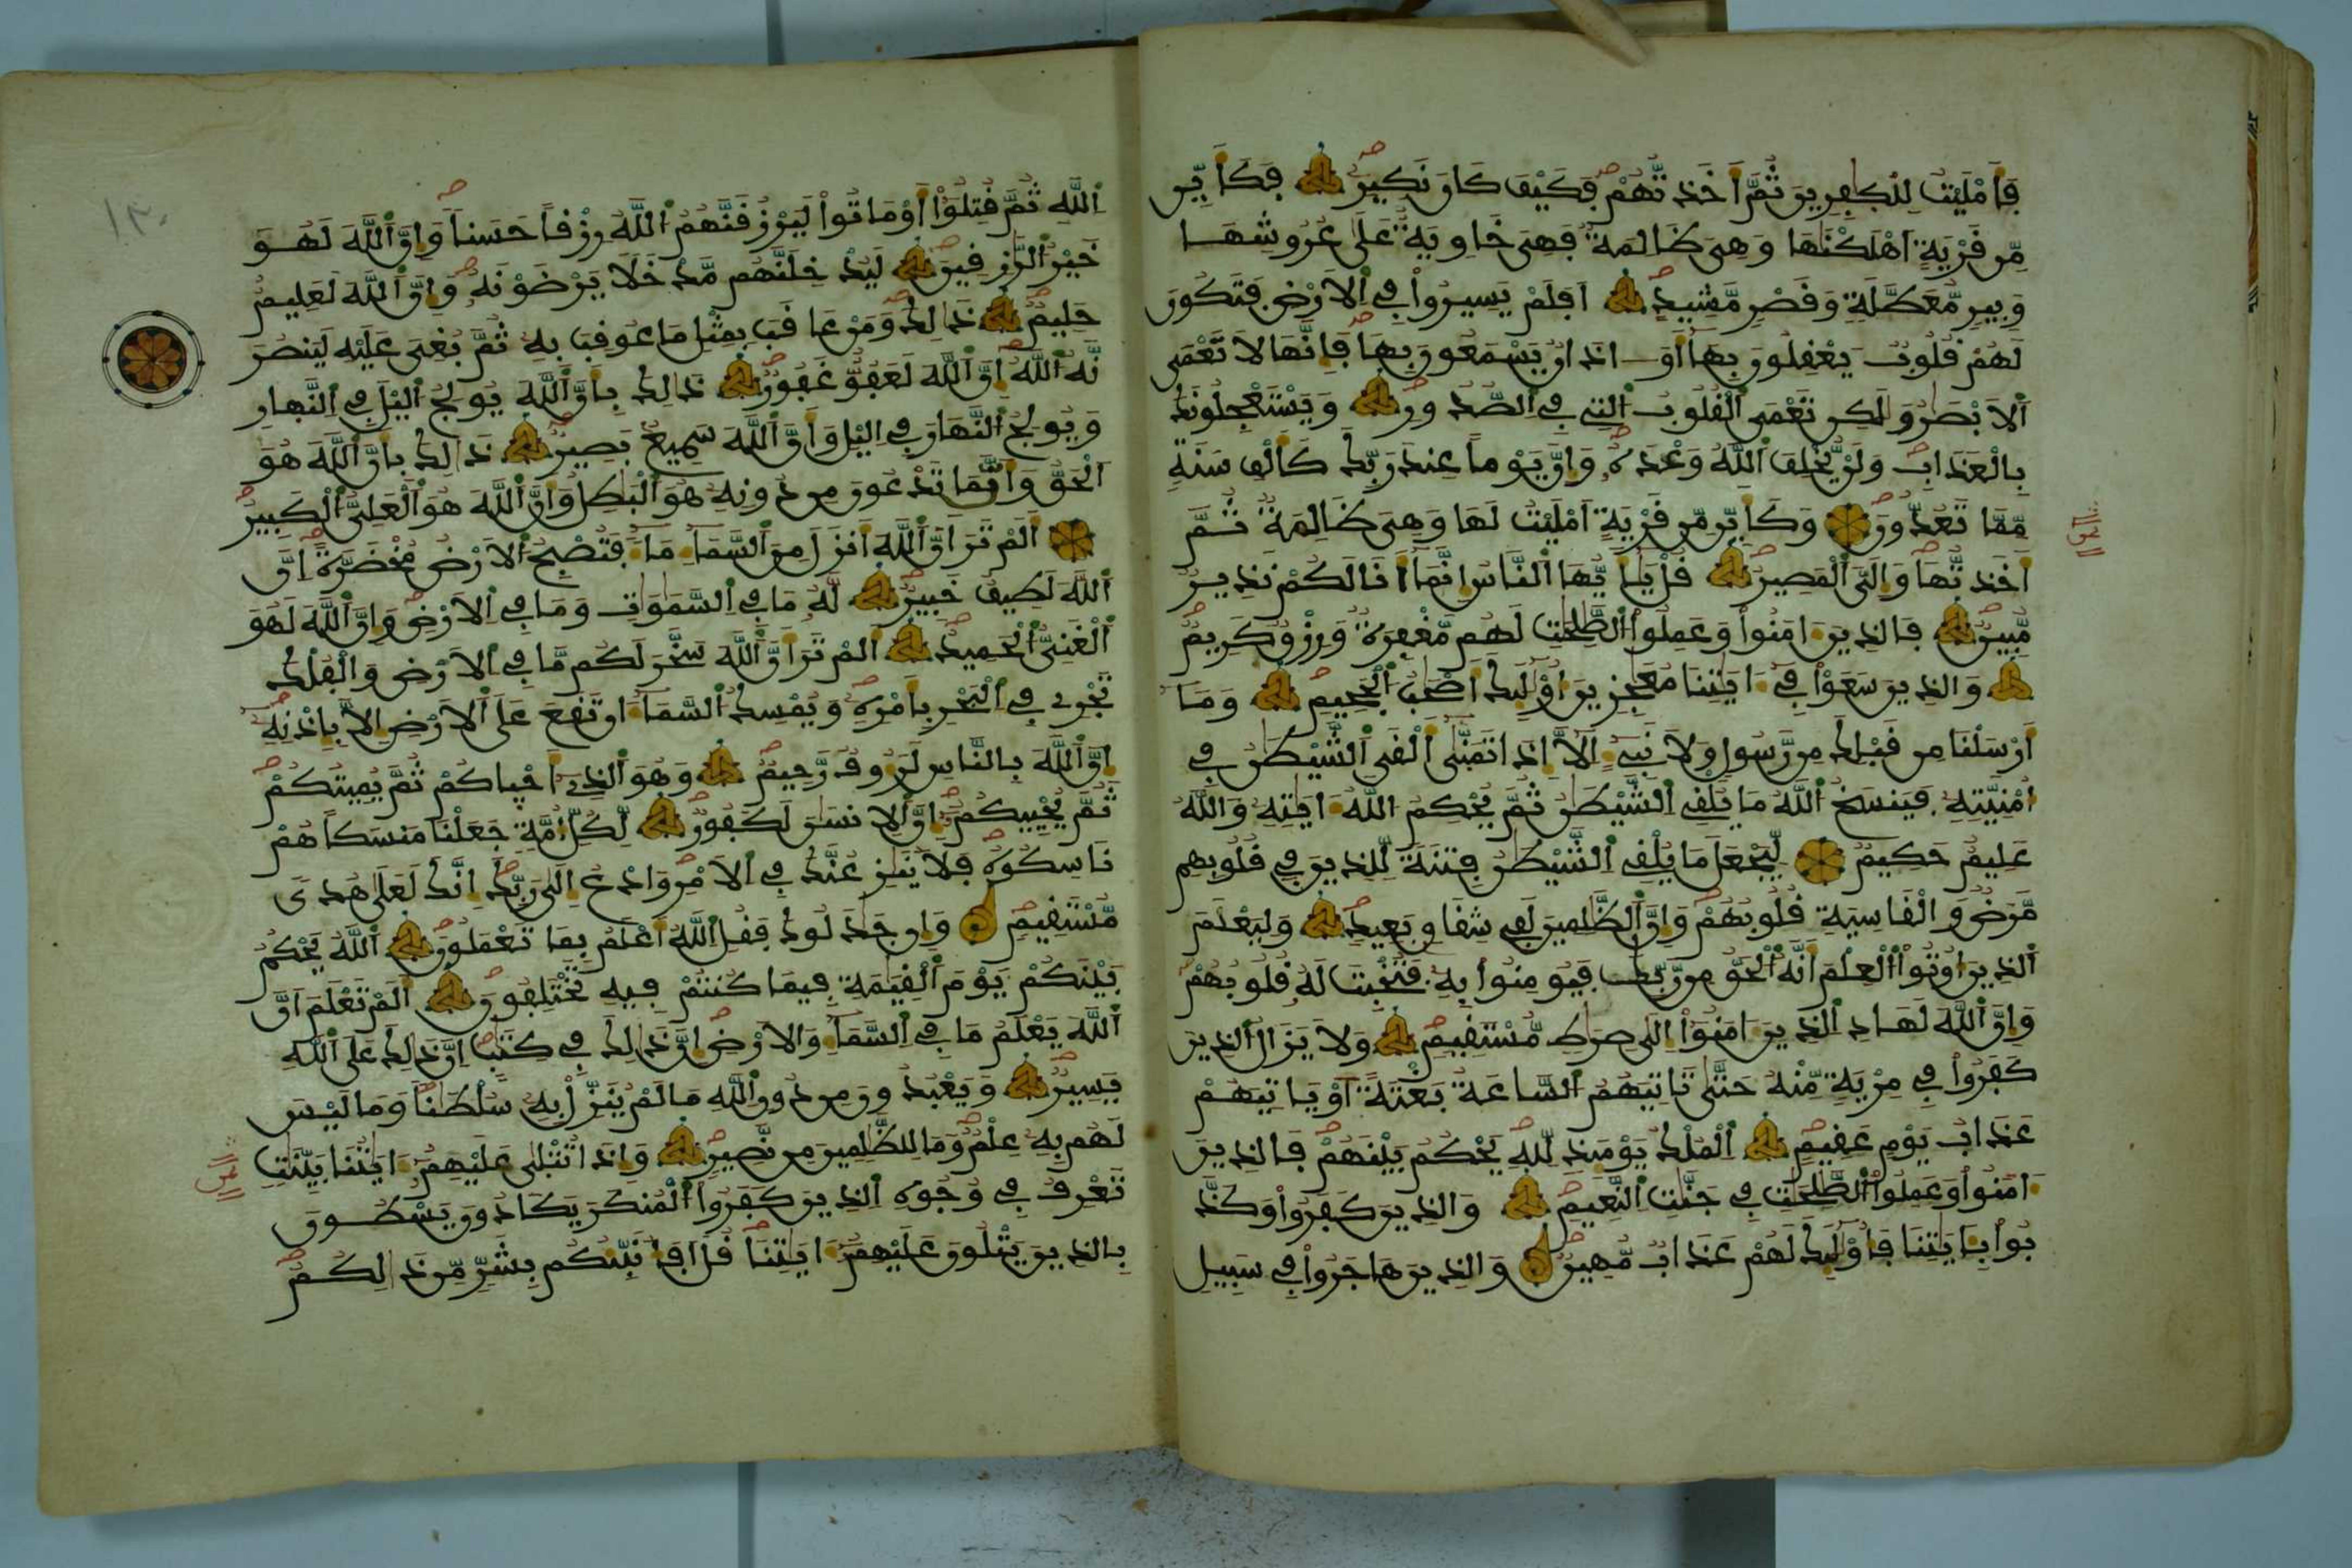 فَأَمْلَيْتُ لِلْكٰفِرِينَ ثُمَّ أَخَذتُّهُمْ فَكَيْفَ كَانَ نَكِيرِ فَكَأَيِّن
مِّن قَرْيَةٍ أَهْلَكْنَٰهَا وَهِيَ ظَالِمَةٌ فَهِيَ خَاوِيَةٌ عَلَىٰ عُرُوشِهَا
وَبِيرٍ مُّعَطَّلَةٍ وَقَصْرٍ مَّشِيدٍ أَفَلَمْ يَسِيرُواْ فِي اِلَارْضِ فَتَكُونَ
لَهُمْ قُلُوبٌ يَعْقِلُونَ بِهَا أَوَ اٰذَانٌ يَسْمَعُونَ بِهَا فَإِنَّهَا لَا تَعْمَى
اَلَابْصَٰرُ وَلَٰكِن تَعْمَى اَلْقُلُوبُ اُلتِي فِي اِلصُّدُورِ وَيَسْتَعْجِلُونَكَ
بِالْعَذَابِ وَلَنْ يُّخْلِفَ اَللَّهُ وَعْدَهُ وَإِنَّ يَوْماً عِندَ رَبِّكَ كَأَلْفِ سَنَةٍ
مِّمَّا تَعُدُّونَ وَكَأَيِّن مِّن قَرْيَةٍ اَمْلَيْتُ لَهَا وَهِيَ ظَالِمَةٌ ثُمَّ
أَخَذتُّهَا وَإِلَيَّ اَلْمَصِيرُ قُلْ يَٰأَيُّهَا اَلنَّاسُ إِنَّمَا أَنَا لَكُمْ نَذِيرٌ
مُّبِينٌ فَالذِينَ ءَامَنُواْ وَعَمِلُواْ اُلصَّٰلِحَٰتِ لَهُم مَّغْفِرَةٌ وَرِزْقٌ كَرِيمٌ
وَالذِينَ سَعَوْاْ فِي ءَايَٰتِنَا مُعَٰجِزِينَ أُوْلَٰئِكَ أَصْحَٰبُ اُلْجَحِيمِ وَمَا
أَرْسَلْنَا مِن قَبْلِكَ مِن رَّسُولٍ وَلَا نَبِيءٍ اِلَّا إِذَا تَمَنَّىٰ أَلْقَى اَلشَّيْطَٰنُ فِي
أُمْنِيَّتِهِ فَيَنسَخُ اُللَّهُ مَا يُلْقِي اِلشَّيْطَٰنُ ثُمَّ يُحْكِمُ اُللَّهُ ءَايَٰتِهِ وَاللَّهُ
عَلِيمٌ حَكِيمٌ لِّيَجْعَلَ مَا يُلْقِي اِلشَّيْطَٰنُ فِتْنَةً لِّلذِينَ فِي قُلُوبِهِم
مَّرَضٌ وَالْقَاسِيَةِ قُلُوبُهُمْ وَإِنَّ اَلظَّٰلِمِينَ لَفِي شِقَاقٍ بَعِيدٍ وَلِيَعْلَمَ
اَلذِينَ أُوتُواْ اُلْعِلْمَ أَنَّهُ اُلْحَقُّ مِن رَّبِّكَ فَيُومِنُواْ بِهِ فَتُخْبِتَ لَهُ قُلُوبُهُمْ
وَإِنَّ اَللَّهَ لَهَادِ اِلذِينَ ءَامَنُواْ إِلَىٰ صِرَٰطٍ مُّسْتَقِيمٍ وَلَا يَزَالُ اُلذِينَ
كَفَرُواْ فِي مِرْيَةٍ مِّنْهُ حَتَّىٰ تَاتِيَهُمُ اُلسَّاعَةُ بَغْتَةً اَوْ يَاتِيَهُمْ
عَذَابُ يَوْمٍ عَقِيمٍ اِلْمُلْكُ يَوْمَئِذٍ لِّلَّهِ يَحْكُمُ بَيْنَهُمْ فَالذِينَ
ءَامَنُواْ وَعَمِلُواْ اُلصَّٰلِحَٰتِ فِي جَنَّٰتِ اِلنَّعِيمِ وَالذِينَ كَفَرُواْ وَكَذَّ
بُواْ بِـَٔايَٰتِنَا فَأُوْلَٰئِكَ لَهُمْ عَذَابٌ مُّهِينٌ وَالذِينَ هَاجَرُواْ فِي سَبِيلِ
اِللَّهِ ثُمَّ قُتِلُواْ أَوْ مَاتُواْ لَيَرْزُقَنَّهُمُ اُللَّهُ رِزْقاً حَسَناً وَإِنَّ اَللَّهَ لَهُوَ
خَيْرُ اُلرَّٰزِقِينَ لَيُدْخِلَنَّهُم مَّدْخَلًا يَرْضَوْنَهُ وَإِنَّ اَللَّهَ لَعَلِيمٌ
حَلِيمٌ ذَٰلِكَ وَمَنْ عَاقَبَ بِمِثْلِ مَا عُوقِبَ بِهِ ثُمَّ بُغِيَ عَلَيْهِ لَيَنصُرَ
نَّهُ اُللَّهُ إِنَّ اَللَّهَ لَعَفُوٌّ غَفُورٌ ذَٰلِكَ بِأَنَّ اَللَّهَ يُولِجُ اُلَّيْلَ فِي اِلنَّهَارِ
وَيُولِجُ اُلنَّهَارَ فِي اِلَّيْلِ وَأَنَّ اَللَّهَ سَمِيعٌ بَصِيرٌ ذَٰلِكَ بِأَنَّ اَللَّهَ هُوَ
اَلْحَقُّ وَأَنَّمَا تَدْعُونَ مِن دُونِهِ هُوَ اَلْبَٰطِلُ وَأَنَّ اَللَّهَ هُوَ اَلْعَلِيُّ اُلْكَبِيرُ
أَلَمْ تَرَ أَنَّ اَللَّهَ أَنزَلَ مِنَ اَلسَّمَاءِ مَاءً فَتُصْبِحُ اُلَارْضُ مُخْضَرَّةً اِنَّ
اَللَّهَ لَطِيفٌ خَبِيرٌ لَّهُ مَا فِي اِلسَّمَٰوَٰتِ وَمَا فِي اِلَارْضِ وَإِنَّ اَللَّهَ لَهُوَ
اَلْغَنِيُّ اُلْحَمِيدُ أَلَمْ تَرَ أَنَّ اَللَّهَ سَخَّرَ لَكُم مَّا فِي اِلَارْضِ وَالْفُلْكَ
تَجْرِي فِي اِلْبَحْرِ بِأَمْرِهِ وَيُمْسِكُ اُلسَّمَاءَ أَن تَقَعَ عَلَى اَلَارْضِ إِلَّا بِإِذْنِهِ
إِنَّ اَللَّهَ بِالنَّاسِ لَرَءُوفٌ رَّحِيمٌ وَهُوَ اَلذِي أَحْيَاكُمْ ثُمَّ يُمِيتُكُمْ
ثُمَّ يُحْيِيكُمُ إِنَّ اَلِانسَٰنَ لَكَفُورٌ لِّكُلِّ أُمَّةٍ جَعَلْنَا مَنسَكاً هُمْ
نَاسِكُوهُ فَلَا يُنَٰزِعُنَّكَ فِي اِلَامْرِ وَادْعُ إِلَىٰ رَبِّكَ إِنَّكَ لَعَلَىٰ هُدىً
مُّسْتَقِيمٍ وَإِن جَٰدَلُوكَ فَقُلِ اِللَّهُ أَعْلَمُ بِمَا تَعْمَلُونَ اَللَّهُ يَحْكُمُ
بَيْنَكُمْ يَوْمَ اَلْقِيَٰمَةِ فِيمَا كُنتُمْ فِيهِ تَخْتَلِفُونَ أَلَمْ تَعْلَمَ اَنَّ
اَللَّهَ يَعْلَمُ مَا فِي اِلسَّمَاءِ وَالَارْضِ إِنَّ ذَٰلِكَ فِي كِتَٰبٍ اِنَّ ذَٰلِكَ عَلَى اَللَّهِ
يَسِيرٌ وَيَعْبُدُونَ مِن دُونِ اِللَّهِ مَا لَمْ يُنَزِّلْ بِهِ سُلْطَٰناً وَمَا لَيْسَ
لَهُم بِهِ عِلْمٌ وَمَا لِلظَّٰلِمِينَ مِن نَّصِيرٍ وَإِذَا تُتْلَىٰ عَلَيْهِمُ ءَايَٰتُنَا بَيِّنَٰتٍ
تَعْرِفُ فِي وُجُوهِ اِلذِينَ كَفَرُواْ اُلْمُنكَرَ يَكَادُونَ يَسْطُونَ
بِالذِينَ يَتْلُونَ عَلَيْهِمُ ءَايَٰتِنَا قُلَ اَفَأُنَبِّئُكُم بِشَرٍّ مِّن ذَٰلِكُمُ